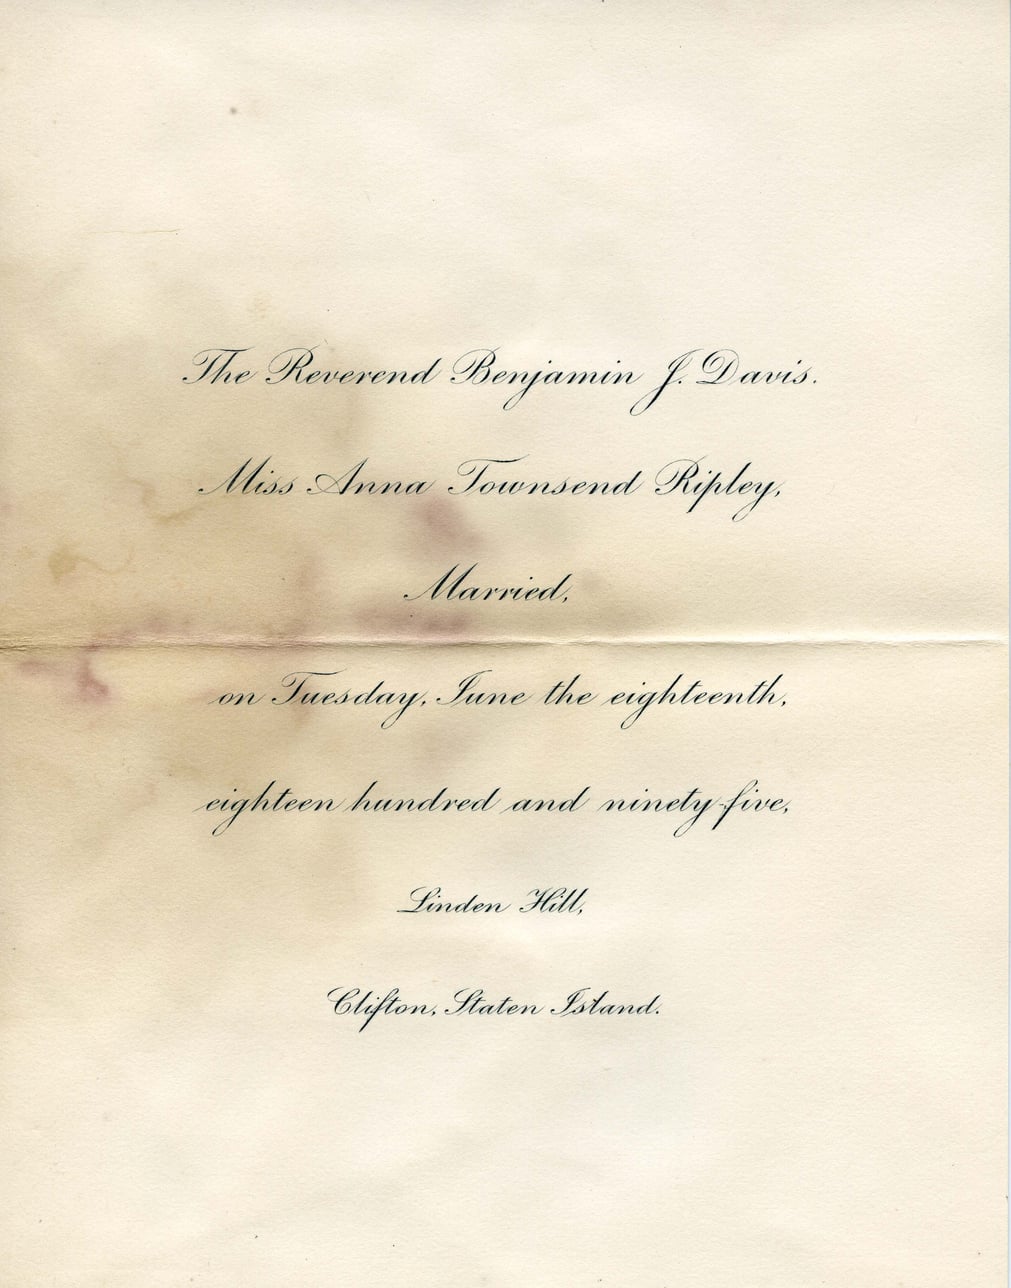 The Reverend Benjamin J. Davis.
Miss Anna Townsend Ripley,
Married,
on Tuesday, June the eighteenth,
eighteen hundred and ninety-five,
Linden Hill,
Clifton, Staten Island.